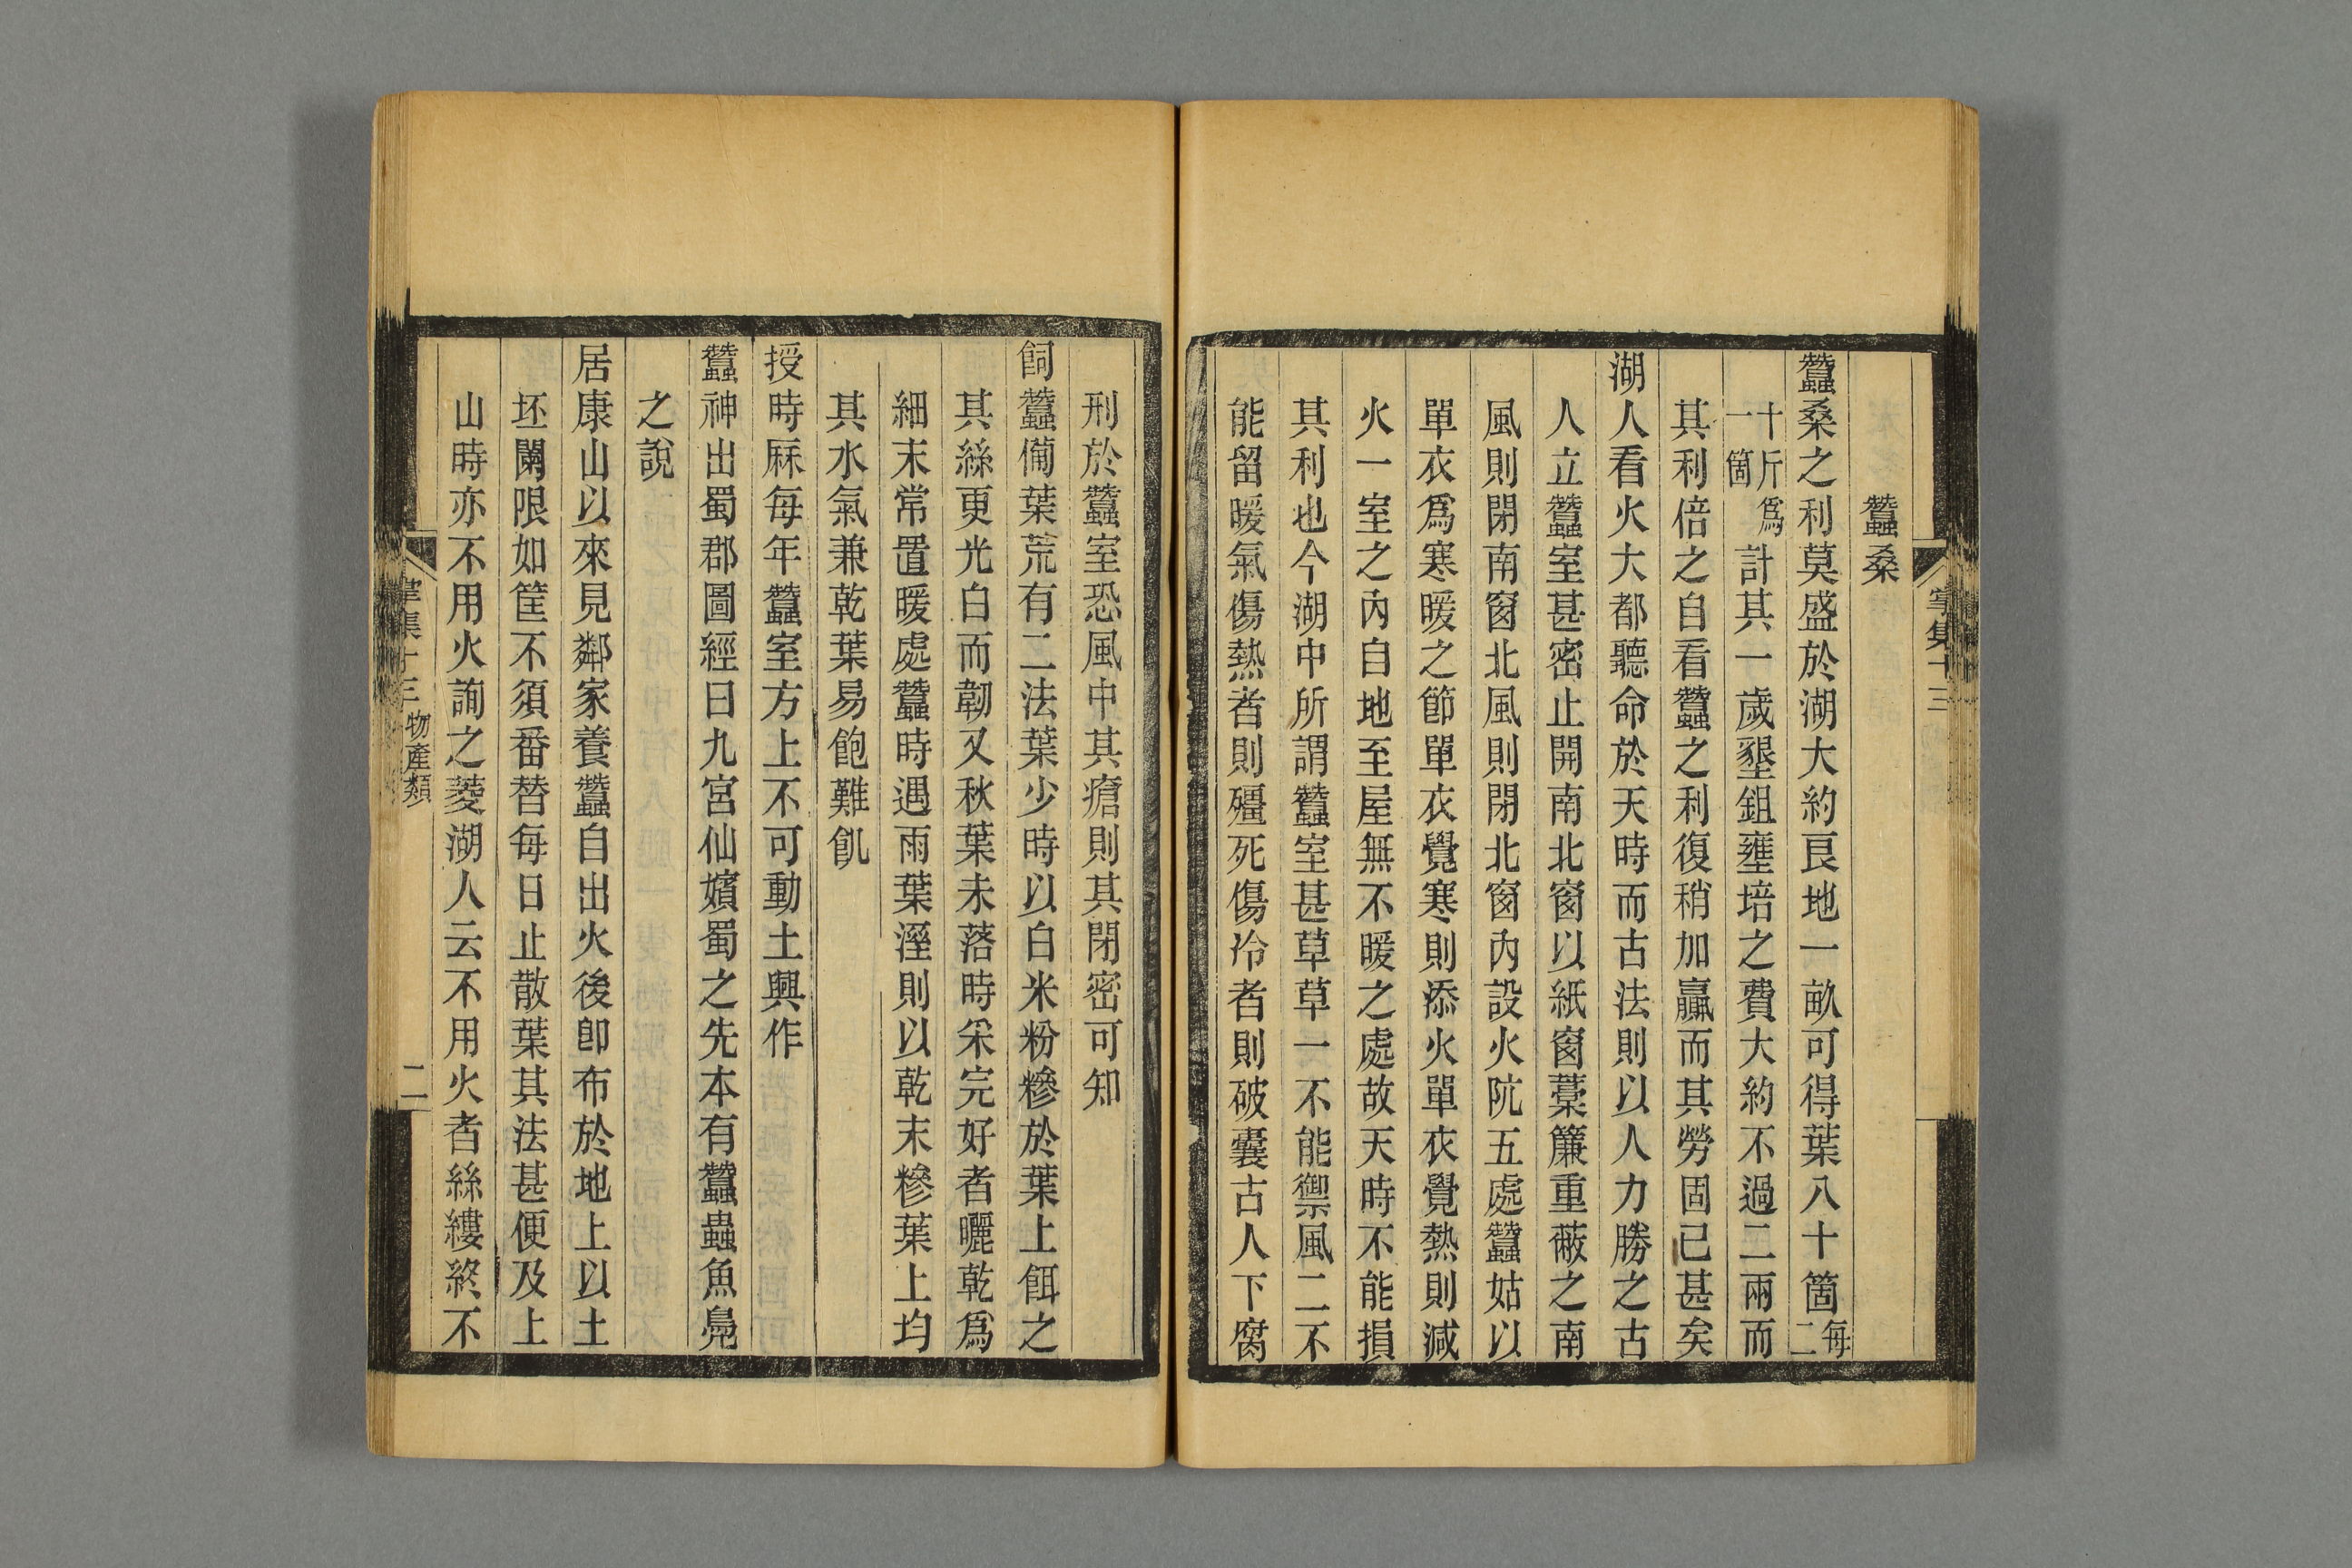 蠶桑
蠶桑之利莫盛於湖大約良地一畝可得葉八十箇每二
十斤爲一箇計其一歲墾鉏壅培之費大約不過二兩而
其利倍之自看蠶之利復稍加贏而其勞固已甚矣
湖人看火大都聽命於天時而古法則以人力勝之古
人立蠶室甚密止開南北窗以紙窗藁簾重蔽之南
風則閉南窗北風則閉北窗內設火阬五處蠶姑以
單衣爲寒暖之節單衣覺寒則添火單衣覺熱則減
火一室之內自地至屋無不暖之處故天時不能損
其利也今湖中所謂蠶室甚草草一不能禦風二不
能留暖氣傷熱者則殭死傷冷者則破囊古人下腐
刑於蠶室恐風中其瘡則其閉密可知
飼蠶備葉荒有二法葉少時以白米粉糝於葉上餌之
其絲更光白而韌又秋葉未落時采完好者曬乾爲
細末常置暖處蠶時遇雨葉溼則以乾末糝葉上均
其水氣兼乾葉易飽難飢
授時厤每年蠶室方上不可動土興作
蠶神出蜀郡圖經曰九宮仙嬪蜀之先本有蠶蟲魚鳧
之說
居康山以來見鄰家養蠶自出火後卽布於地上以土
坯闌限如筐不須番替每日止散葉其法甚便及上
山時亦不用火詢之菱湖人云不用火者絲縷終不
集十三
物產類
二